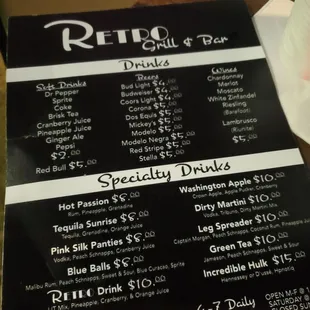 RETRO
Grill & Bar
Drinks
Soft Drinks
Dr Pepper
Sprite
Coke
Brisk Tea
Cranberry Juice
Pineapple Juice
Ginger Ale
Pepsi
$2.00
Red Bull $5.00
Beers
Bud Light $4.00
Budweiser $4.00
Coors Light $4.00
Corona $5.00
Dos Equis $5.00
Mickey's $5.00
Modelo $5.00
Modelo Negra $5.00
Red Stripe $5.00
Stella $5.00
Wines
Chardonnay
Merlot
Moscato
White Zinfandel
Riesling
(Barefoot)
Lambrusco
(Riunite)
$5.00
Specialty Drinks
Hot Passion $8.00
Rum, Pineapple, Grenadine
Tequila Sunrise $8.00
Tequila, Grenadine, Orange Juice
Pink Silk Panties $8.00
Vodka, Peach Schnapps, Cranberry Juice
Blue Balls $8.00
Malibu Rum, Peach Schnapps, Sweet & Sour, Blue Curacao, Sprite
RETRO Drink $10.00
Mix, Pineapple, Cranberry, & Orange Juice
Washington Apple $10.00
Crown Apple, Apple Pucker, Cranberry
Dirty Martini $10.00
Vodka, Tribuno, Dirty Martini Mix
Leg Spreader $10.00
Captain Morgan, Peach Schnapps, Coconut Rum, Pineapple
Green Tea $10.00
Jameson, Peach Schnapps, Sweet & Sour
Incredible Hulk $15.00
Hennessy or D'usse, Hpnotiq
7 Daily
OPEN M-F @ 1
SATURDAY @
CLOSED SU